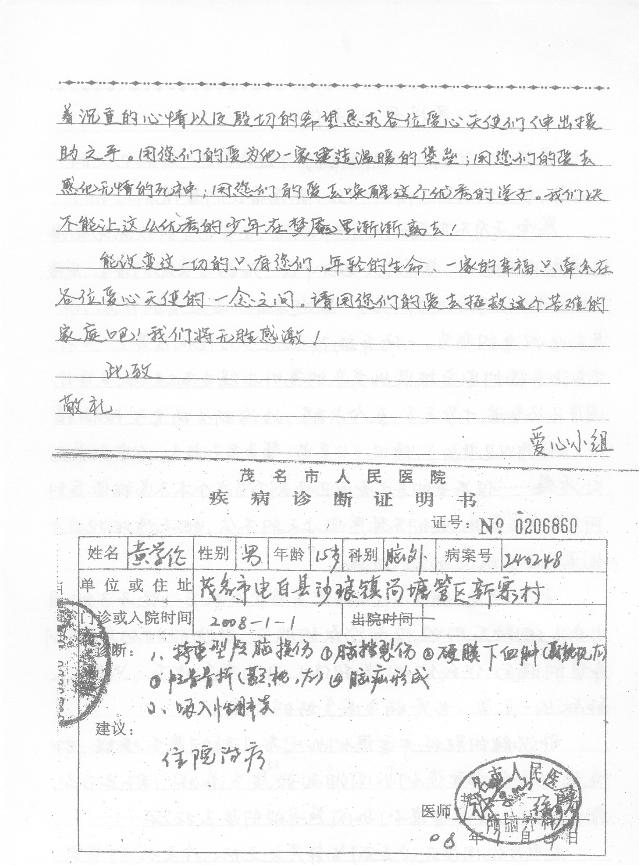 着沉重的心情以及殷切的希望恳求各位爱心天使们伸出援
助之手。用您们的爱为他一家重造温暖的堡垒；用您们的爱去
感化无情的死神；用您们的爱去唤醒这个优秀的学子。我们决
不能让这么优秀的少年在梦魇里渐渐离去！
能改变这一切的只有您们，年轻的生命、一家的幸福只牵系在
各位爱心天使的一念之间。请用您们的爱去拯救这个苦难的
家庭吧！我们将无胜感激！
此致
敬礼
爱心小组
茂名市人民医院
疾病诊断证明书
证号：№ 0206860
姓名 黄学伦 性别 男 年龄 15岁 科别 脑外 病案号 240248
单位或住址 茂名市电白县沙琅镇尚塘管区新寨村
门诊或入院时间 2008-1-1 出院时间
诊断：1、特重型 脑损伤 ①脑挫裂伤 ②硬膜下血肿
③ 骨骨折 ④脑疝形成
2、吸入性肺炎
建议：
住院治疗
茂名市人民医院
医师
08年1月 日